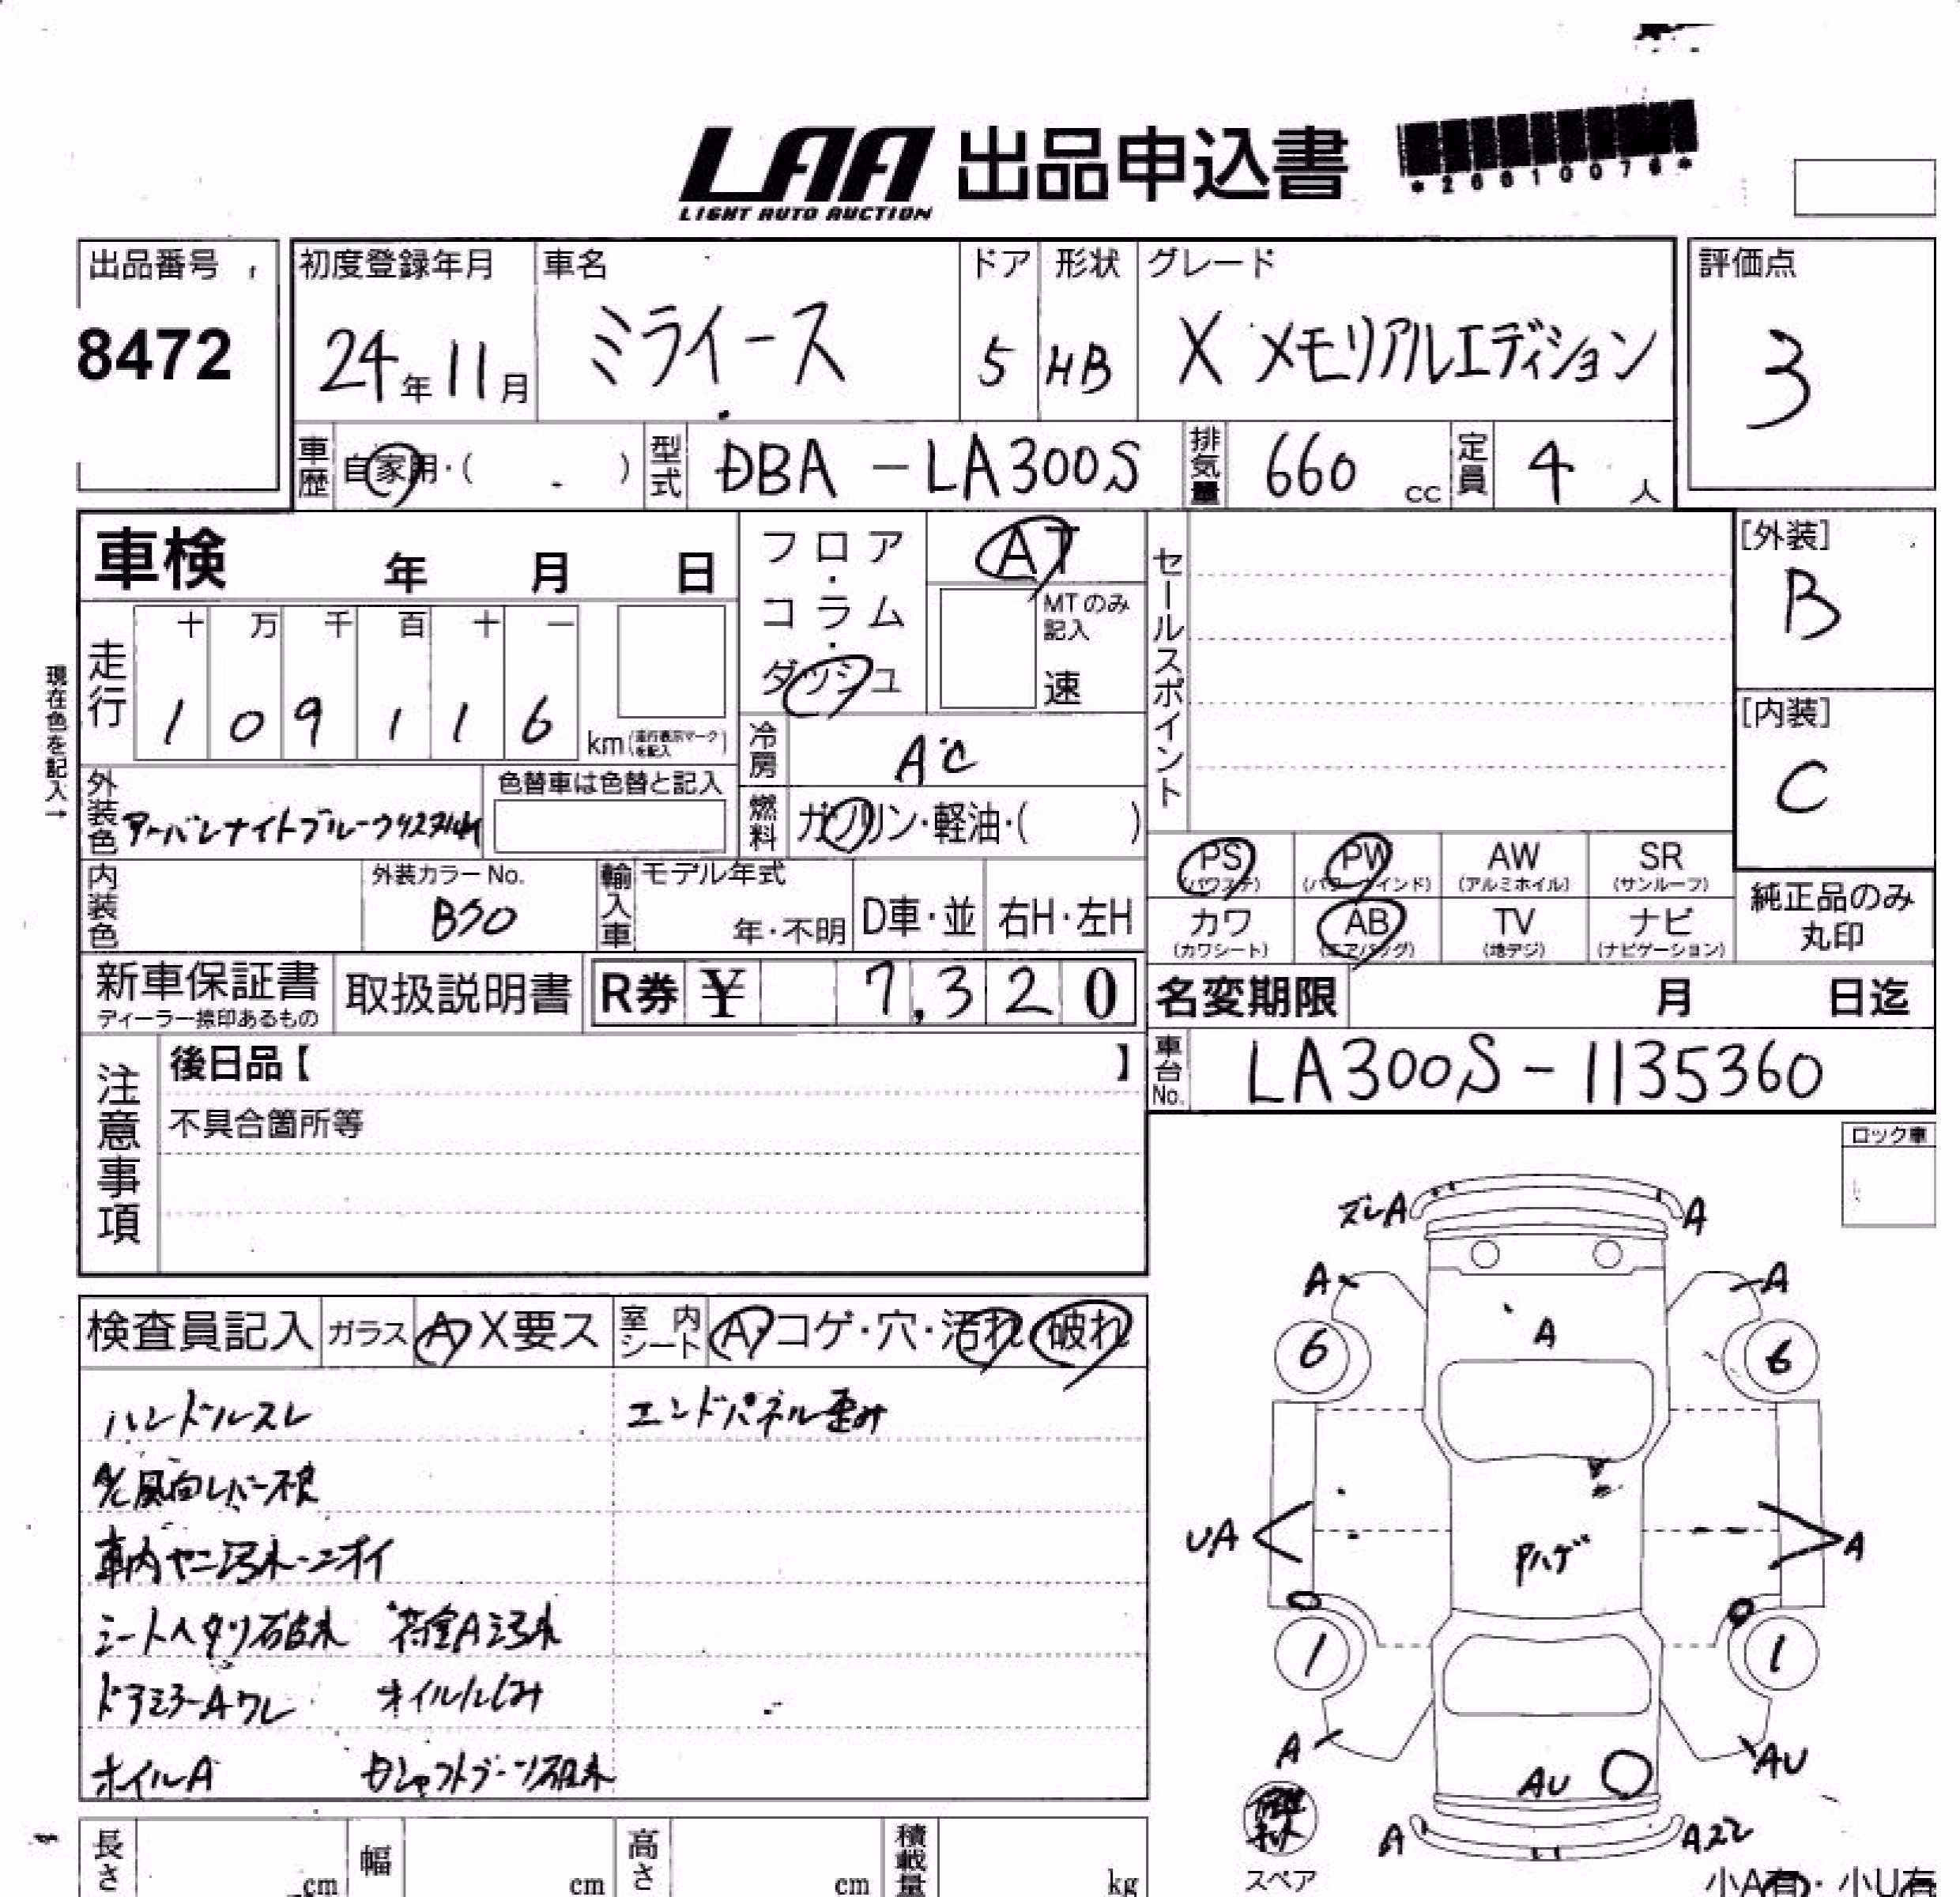 LAA 出品申込書
LIGHT AUTO AUCTION
*26610076*
出品番号
8472
初度登録年月
24年11月
車名
ミライース
ドア
5
形状
HB
グレード
X メモリアルエディション
評価点
3
車歴
自家用・( )
型式
DBA-LA300S
排気量
660 cc
定員
4 人
車検 年 月 日
フロア・コラム・ダッシュ
AT
MTのみ記入
速
セールスポイント
[外装]
B
[内装]
C
現在色を記入→
走行
十 万 千 百 十 一
1 0 9 1 1 6
km(走行表示マークを記入)
冷房
AC
燃料
ガソリン・軽油・( )
外装色
アーバンナイトブルークリスタル
色替車は色替と記入
内装色
外装カラーNo.
B50
輸入車
モデル年式
年・不明
D車・並
右H・左H
PS (パワステ)
PW (パワーウインド)
AW (アルミホイル)
SR (サンルーフ)
カワ (カワシート)
AB (エアバッグ)
TV (地デジ)
ナビ (ナビゲーション)
純正品のみ丸印
新車保証書
ディーラー捺印あるもの
取扱説明書
R券 ¥ 7,320
名変期限 月 日迄
車台No.
LA300S-1135360
注意事項
後日品【 】
不具合箇所等
ロック車
検査員記入
ガラス A X要ス
室内シート A・コゲ・穴・汚れ・破れ
ハンドルスレ
エンドパネル歪み
A/C風向レバー不良
車内ヤニ汚れ・ニオイ
シートヘタリ破れ 荷室A汚れ
ドアミラーAワレ オイルにじみ
ホイルA
ブーツ破れ
ズレA
A
A
A
A
6
6
UA
A
Pハゲ
1
1
A
AU
AU
A
スペア
長さ cm
幅 cm
高さ cm
積載量 kg
小A有・小U有